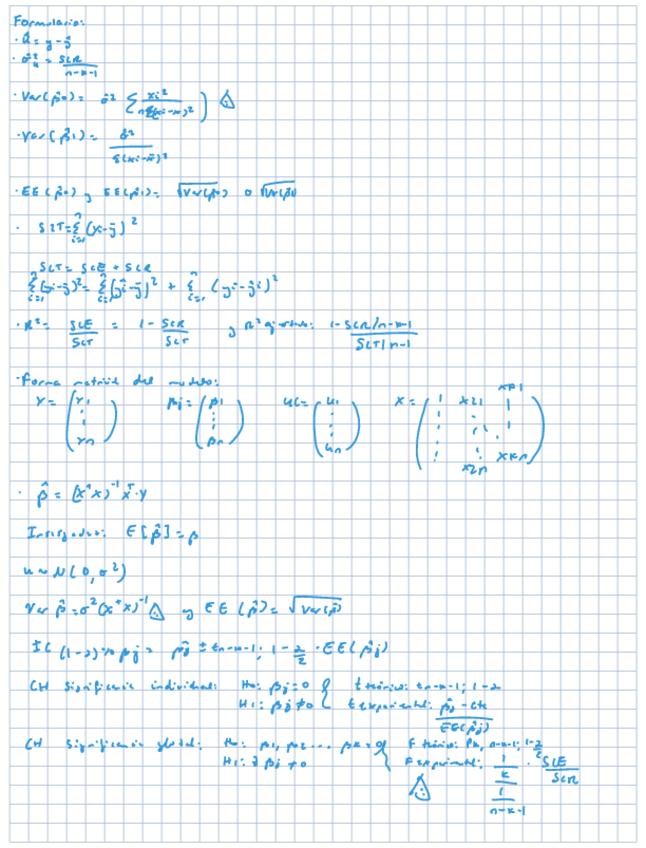 Formulario:
· û = y - ŷ
· σ̂²u = SCR / n-k-1
· Var(β̂0) = σ̂² ( Σ xi² / nΣ(xi-x̄)² )
· Var(β̂1) = σ̂² / Σ(xi-x̄)²
· EE(β̂0) y EE(β̂1) = √Var(β̂0) o √Var(β̂1)
· SCT = Σ i=1 n (x-ȳ)²
SCT = SCE + SCR
Σ i=1 n (yi-ȳ)² = Σ i=1 n (ŷi-ȳ)² + Σ i=1 n (yi-ŷi)²
· R² = SCE / SCT = 1 - SCR / SCT y R² ajustado: 1-SCR/n-k-1 / SCT/n-1
· Forma matricial del modelo:
Y = ( Y1 ⋮ Yn ) βj = ( β1 ⋮ βn ) u = ( u1 ⋮ un ) X = ( 1 x21 xk1 ⋮ x2n xkn )
· β̂ = (xᵀx)⁻¹ xᵀ·Y
Insesgadez: E[β̂] = β
u ~ N(0, σ²)
Var β̂ = σ²(xᵀx)⁻¹ y EE(β̂) = √Var(β̂)
IC (1-α)% βj = β̂j ± tn-k-1; 1-α/2 · EE(β̂j)
CH significancia individual: H0: βj = 0 { t teórico: tn-k-1; 1-α
H1: βj ≠ 0 { t experimental: β̂j - cte / EE(β̂j)
CH significancia global: H0: β1, β2 ... βk = 0 { F teórico: Fk, n-k-1; 1-α/2
H1: ∃ βj ≠ 0 F experimental: 1/k / 1/n-k-1 · SCE/SCR